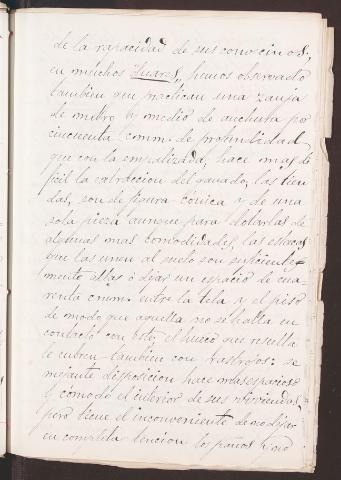 de la rapacidad de sus convecinos;
en muchos Duares, hemos observado
tambien que practican una zanja
de metro y medio de anchura por
cincuenta cmm. de profundidad
que con la empalizada, hace mas di
ficil la extraccion del ganado, las tien
das, son de figura cónica y de una
sola pieza aunque para dotarlas de
algunas mas comodidades, las estacas
que las unen al suelo son suficiente-
mente altas á dejar un espacio de cua
renta cmm. entre la tela y el piso
de modo que aquella no se halla en
contacto con este, el hueco que resulta
le cubren tambien con rastrojos: se
mejante disposicion hace mas espacioso
y comodo el interior de sus viviendas,
pero tiene el inconveniente de no dejar
en completa tension los paños y no